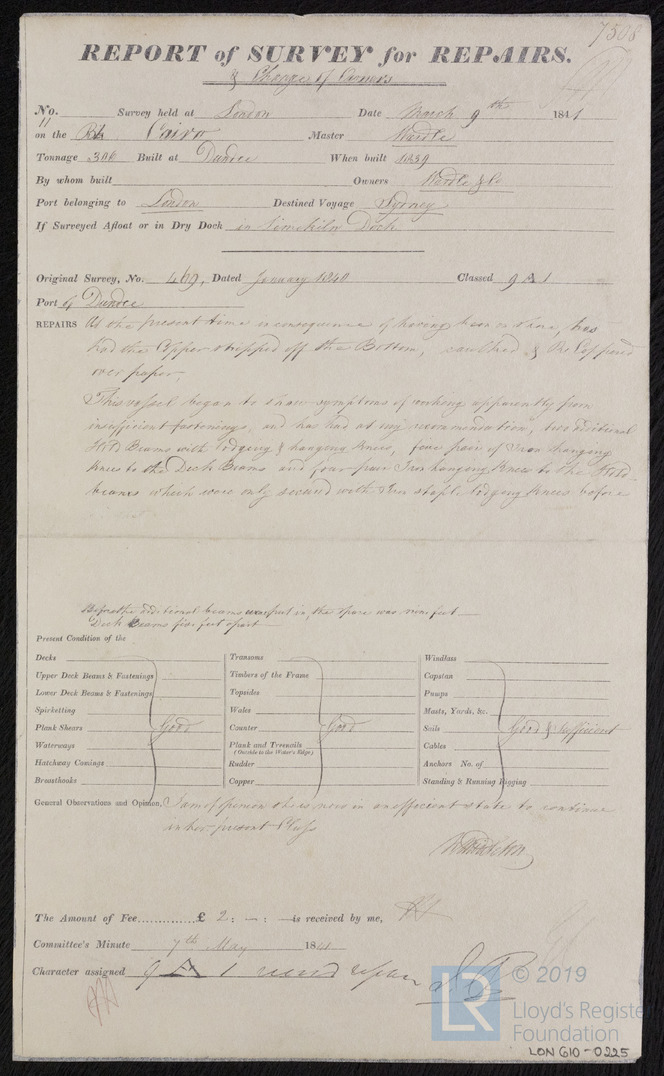 7508
REPORT of SURVEY for REPAIRS.
& Change of Owners
No. 11 Survey held at London Date March 9th 1841
on the Bk Cairo Master Wardle
Tonnage 306 Built at Dundee When built 1839
By whom built Owners Wardle & Co
Port belonging to London Destined Voyage Sydney
If Surveyed Afloat or in Dry Dock in Limekiln Dock
Original Survey, No. 469, Dated January 1840 Classed 9 A 1
Port of Dundee
REPAIRS At the present time in consequence of having been on shore, has
had the Copper stripped off the Bottom, caulked & ReCoppered
over paper.
This vessel began to show symptoms of working apparently from
insufficient fastenings, and has had at my recommendation, two aditional
Hold Beams with lodging & hanging knees, five pair of Iron hanging
knees to the Deck Beams and four pair Iron hanging knees to the Hold
beams which were only secured with Iron staple lodging knees before
Before the additional beams were put in, the space was nine feet
Deck Beams five feet apart
Present Condition of the
Decks Transoms Windlass
Upper Deck Beams & Fastenings Timbers of the Frame Capstan
Lower Deck Beams & Fastenings Topsides Pumps
Spirketting Wales Masts, Yards, &c.
Plank Shears Good Counter Good Sails Good & Sufficient
Waterways Plank and Treenails (Outside to the Water's Edge) Cables
Hatchway Comings Rudder Anchors No. of
Breasthooks Copper Standing & Running Rigging
General Observations and Opinion, I am of Opinion she is now in an efficient state to continue
in her present Class
The Amount of Fee £ 2: –: – is received by me,
Committee's Minute 7th May 1841
Character assigned 9 A 1
© 2019
LR
Lloyd's Register
Foundation
LON 610-0225